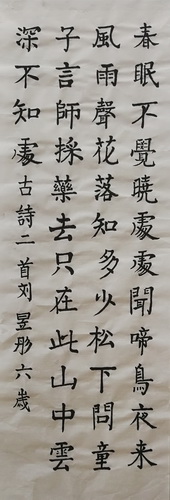 春眠不覺曉處處聞啼鳥夜来
風雨聲花落知多少松下問童
子言師採藥去只在此山中雲
深不知處古詩二首刘昱彤六歲